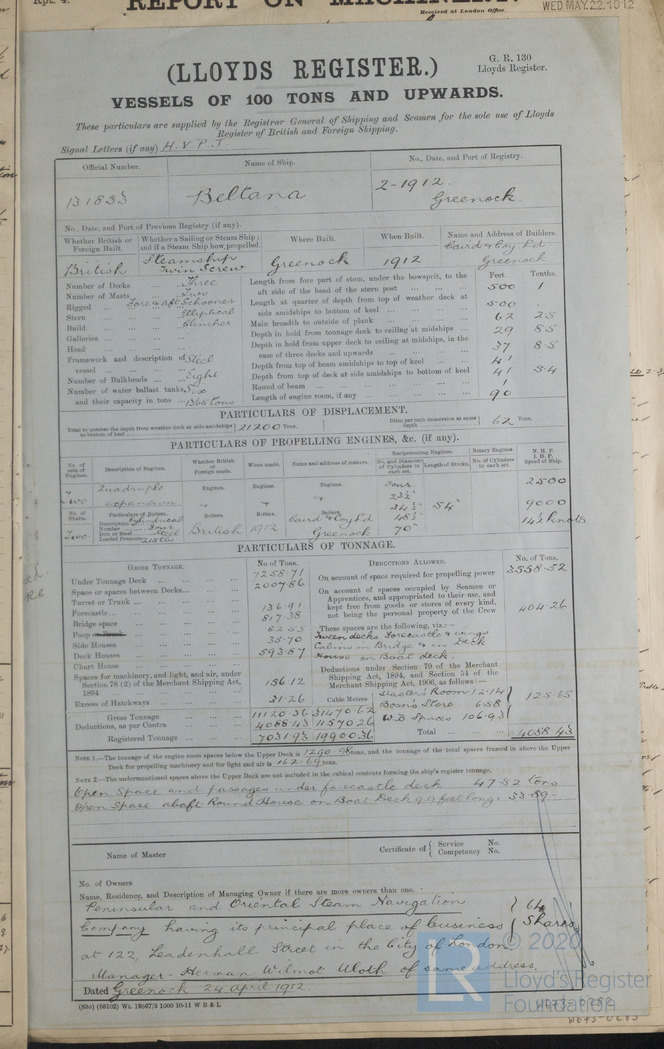 Rpt. 4.
REPORT ON MACHINERY.
Received at London Office
WED. MAY. 22. 1912
G. R. 130
Lloyds Register.
(LLOYDS REGISTER.)
VESSELS OF 100 TONS AND UPWARDS.
These particulars are supplied by the Registrar General of Shipping and Seamen for the sole use of Lloyds
Register of British and Foreign Shipping.
Signal Letters (if any) H.V.P.J.
Official Number. Name of Ship. No., Date, and Port of Registry.
131855 Beltana 2-1912. Greenock.
No., Date, and Port of Previous Registry (if any).
Whether British or Foreign Built. Whether a Sailing or Steam Ship; and if a Steam Ship how propelled. Where Built. When Built. Name and Address of Builders.
British Steamship Twin Screw Greenock 1912 Caird & Coy Ltd Greenock
Number of Decks Three
Number of Masts Two
Rigged Fore & aft Schooner
Stern Elliptical
Build Clincher
Galleries
Head
Framework and description of vessel Steel
Number of Bulkheads Eight
Number of water ballast tanks,
and their capacity in tons 1365 tons
Feet. Tenths.
Length from fore part of stem, under the bowsprit, to the
aft side of the head of the stern post 500 1
Length at quarter of depth from top of weather deck at
side amidships to bottom of keel 500
Main breadth to outside of plank 62 25
Depth in hold from tonnage deck to ceiling at midships 29 85
Depth in hold from upper deck to ceiling at midships, in the
case of three decks and upwards 37 85
Depth from top of beam amidships to top of keel 41
Depth from top of deck at side amidships to bottom of keel 41 54
Round of beam 1
Length of engine room, if any 90
PARTICULARS OF DISPLACEMENT.
Total to quarter the depth from weather deck at side amidships to bottom of keel 21200 Tons. Ditto per inch immersion at same depth 62 Tons.
PARTICULARS OF PROPELLING ENGINES, &c. (if any).
No. of sets of Engines. Description of Engines. Whether British or Foreign made. When made. Name and address of makers. Reciprocating Engines. Rotary Engines. N.H.P. I.H.P. Speed of Ship.
No. and Diameter of Cylinders in each set. Length of Stroke. No. of Cylinders in each set.
Two Quadruple expansion Engines. Engines. Engines. Four 54"
No. of Shafts. Particulars of Boilers. Boilers. Boilers. Boilers.
Two Description Cylindrical
Number Four
Iron or Steel Steel
Loaded Pressure 215 lbs
British 1912 Caird & Coy Ld Greenock 70"
2500
9000
14½ knots
PARTICULARS OF TONNAGE.
GROSS TONNAGE. No. of Tons.
Under Tonnage Deck 7258.71
Space or spaces between Decks 2007.86
Turret or Trunk
Forecastle 136.91
Bridge space 817.38
Poop or Break 82.55
Side Houses 35.70
Deck Houses 593.87
Chart House
Spaces for machinery, and light, and air, under
Section 78 (2) of the Merchant Shipping Act,
1894 156.12
Excess of Hatchways 31.26
Cubic Metres
Gross Tonnage 11120.36 31470.62
Deductions, as per Contra 4088.43 11570.26
Registered Tonnage 7031.93 19900.36
DEDUCTIONS ALLOWED. No. of Tons.
On account of space required for propelling power 3558.52
On account of spaces occupied by Seamen or
Apprentices, and appropriated to their use, and
kept free from goods or stores of every kind,
not being the personal property of the Crew 404.26
These spaces are the following, viz.:—
Tween decks Forecastle & wings
Cabins in Bridge & in Deck
House on Boat deck.
Deductions under Section 79 of the Merchant
Shipping Act, 1894, and Section 54 of the
Merchant Shipping Act, 1906, as follows:—
Master's Room 12.14
Bosn's Store 6.58
W.B. Spaces 106.93
125.65
Total 4088.43
NOTE 1.—The tonnage of the engine room spaces below the Upper Deck is 1290.98 tons, and the tonnage of the total spaces framed in above the Upper
Deck for propelling machinery and for light and air is 162.69 tons.
NOTE 2.—The undermentioned spaces above the Upper Deck are not included in the cubical contents forming the ship's register tonnage.
Open Space and passages under forecastle deck 47.82 tons
Open Space abaft Round House on Boat Deck 9.9 feet long = 53.89 "
Name of Master
Certificate of { Service No.
Competency No.
No. of Owners
Name, Residence, and Description of Managing Owner if there are more owners than one.
Peninsular and Oriental Steam Navigation
Company having its principal place of business
at 122, Leadenhall Street in the City of London
64 Shares
Manager - Herman Wilmot Uloth of same address.
Dated Greenock 24 April 1912.
(835) (66102) Wt. 19567/3 1000 10-11 W B & L
© 2020
LR
Lloyd's Register
Foundation
W073-0282